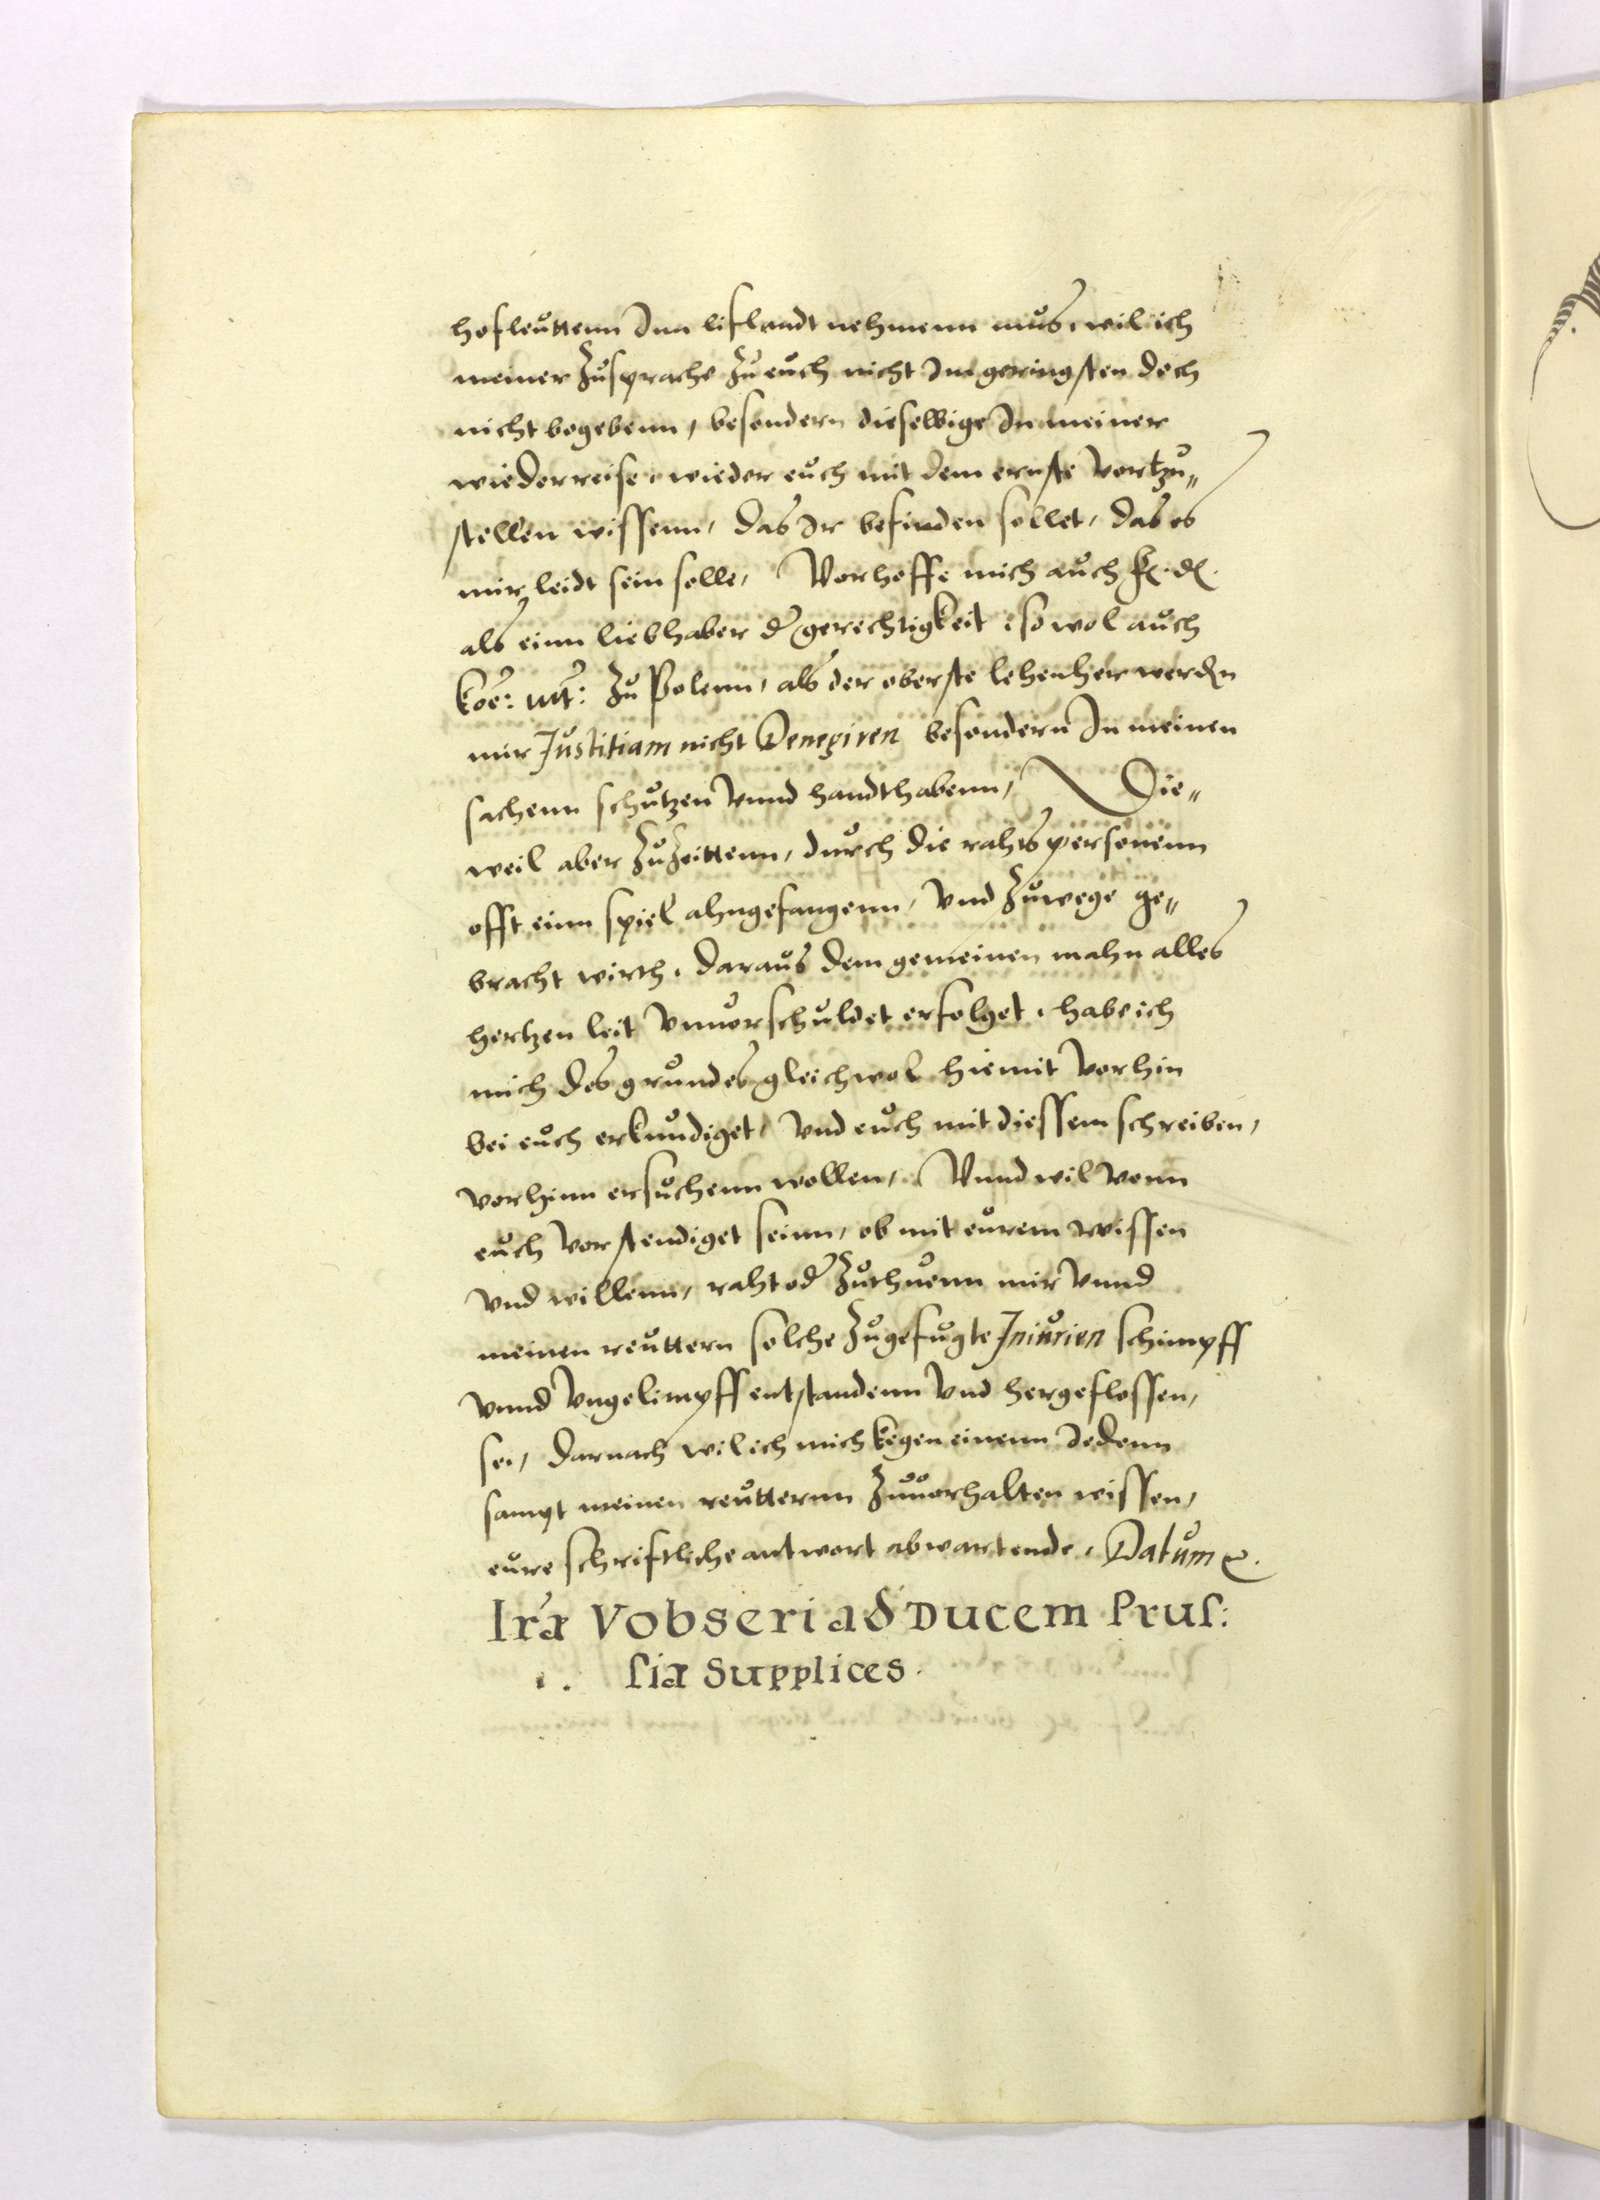 hofleuttenn Inn lifflandt nehmenn mus, wil ich
meiner Zusprache Zu euch nicht Im geringsten doch
nicht begebenn, besondern dieselbige In meiner
wiederreise, wieder euch mit dem ernste vortzu„
stellen wissenn, das Ir befinden sollet, das es
mir leidt sein solle, Vorhoffe mich auch f. d.
als einn liebhaber der gerechtigkeit, so wol auch
Koe: Mt: Zu Polenn, als der oberste lehenher werden
mir Justitiam nicht Denegiren besondern In meinen
sachenn schutzen vnnd handthabenn, Die„
weil aber Zu Zeittenn, durch die rahtspersonenn
offt einn spiel ahngefangenn, vnd Zuwege ge„
bracht wirth, daraus dem gemeinen mahn alles
hertzen leit vnuorschuldet erfolget, habe ich
mich des grundes gleichwol hiemit vorhin
bei euch erkundiget, vnd euch mit diessem schreiben,
vorhinn ersuchenn wollen, Vnnd wil vonn
euch vorstendiget seinn, ob mit eurem wissen
vnd willenn, raht oder Zuthuenn mir vnnd
meinen reuttern solche Zugefugte Iniurien schimpff
vnnd vngelimpff entstandenn vnd hergeflossen,
sei, darnach wil ich mich kegen einenn Jedenn
sampt meinen reutternn Zuuorhalten wissen,
eure schrifftliche antwort abwartende, Datum &.
Ir̃æ Vobseri ad Ducem Prus:
siæ Supplices.